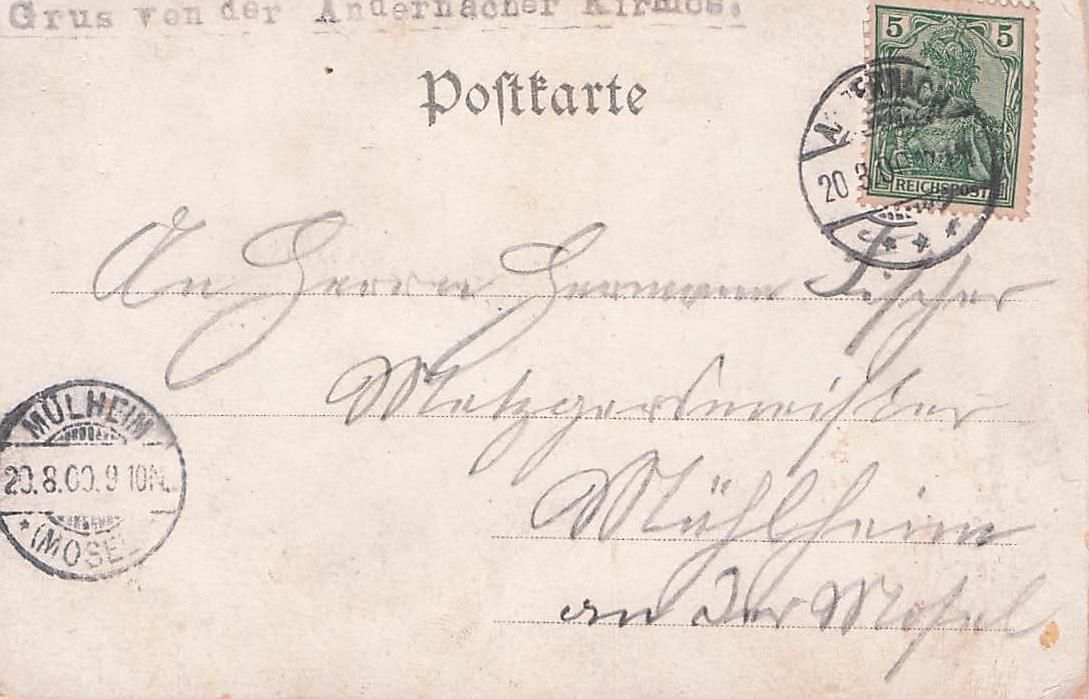 Grus von der Andernacher Kirmes.
Postkarte
5 5
REICHSPOST
20 8
An Herrn Hermann Fischer
Metzgermeister
Mühlheim
an der Mosel
MÜLHEIM
20.8.00.9 10N.
(MOSEL